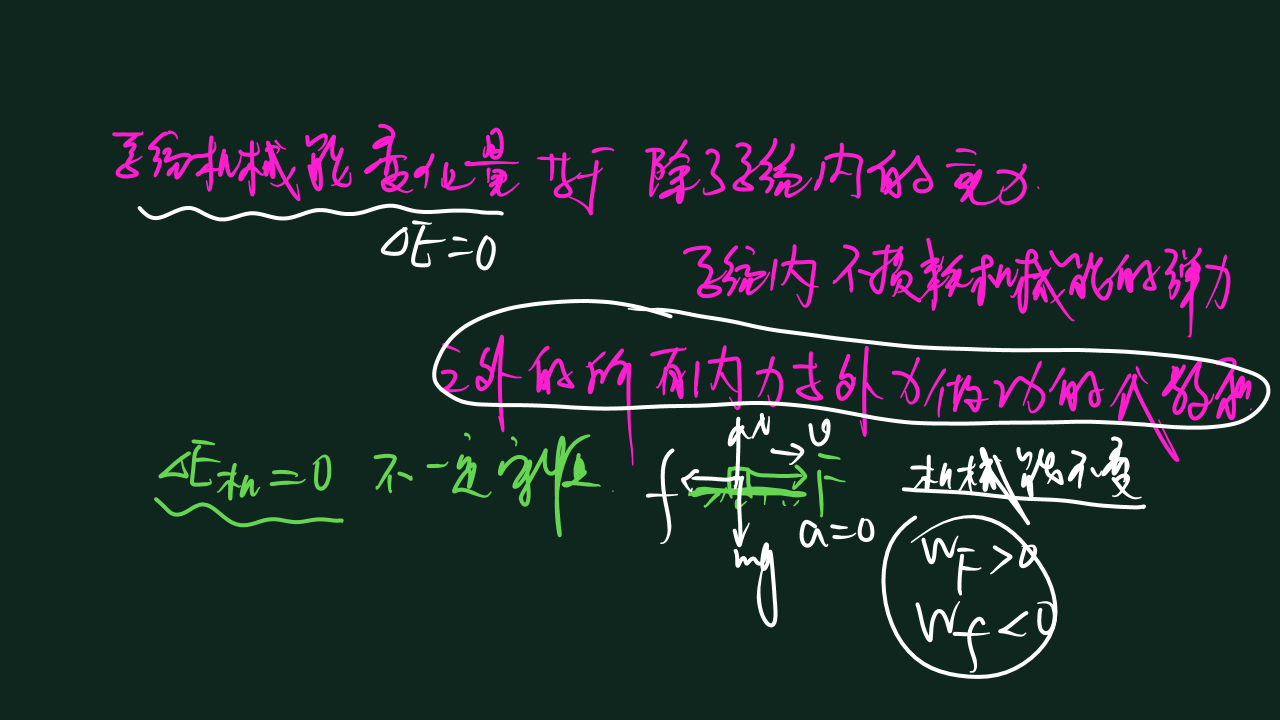 系统机械能变化量 等于 除了系统内的重力
ΔE=0
系统内不损耗机械能的弹力
之外的所有内力与外力做功的代数和
ΔE机=0 不一定守恒
N v
f F
a=0
mg
机械能不变
W_F>0
W_f<0